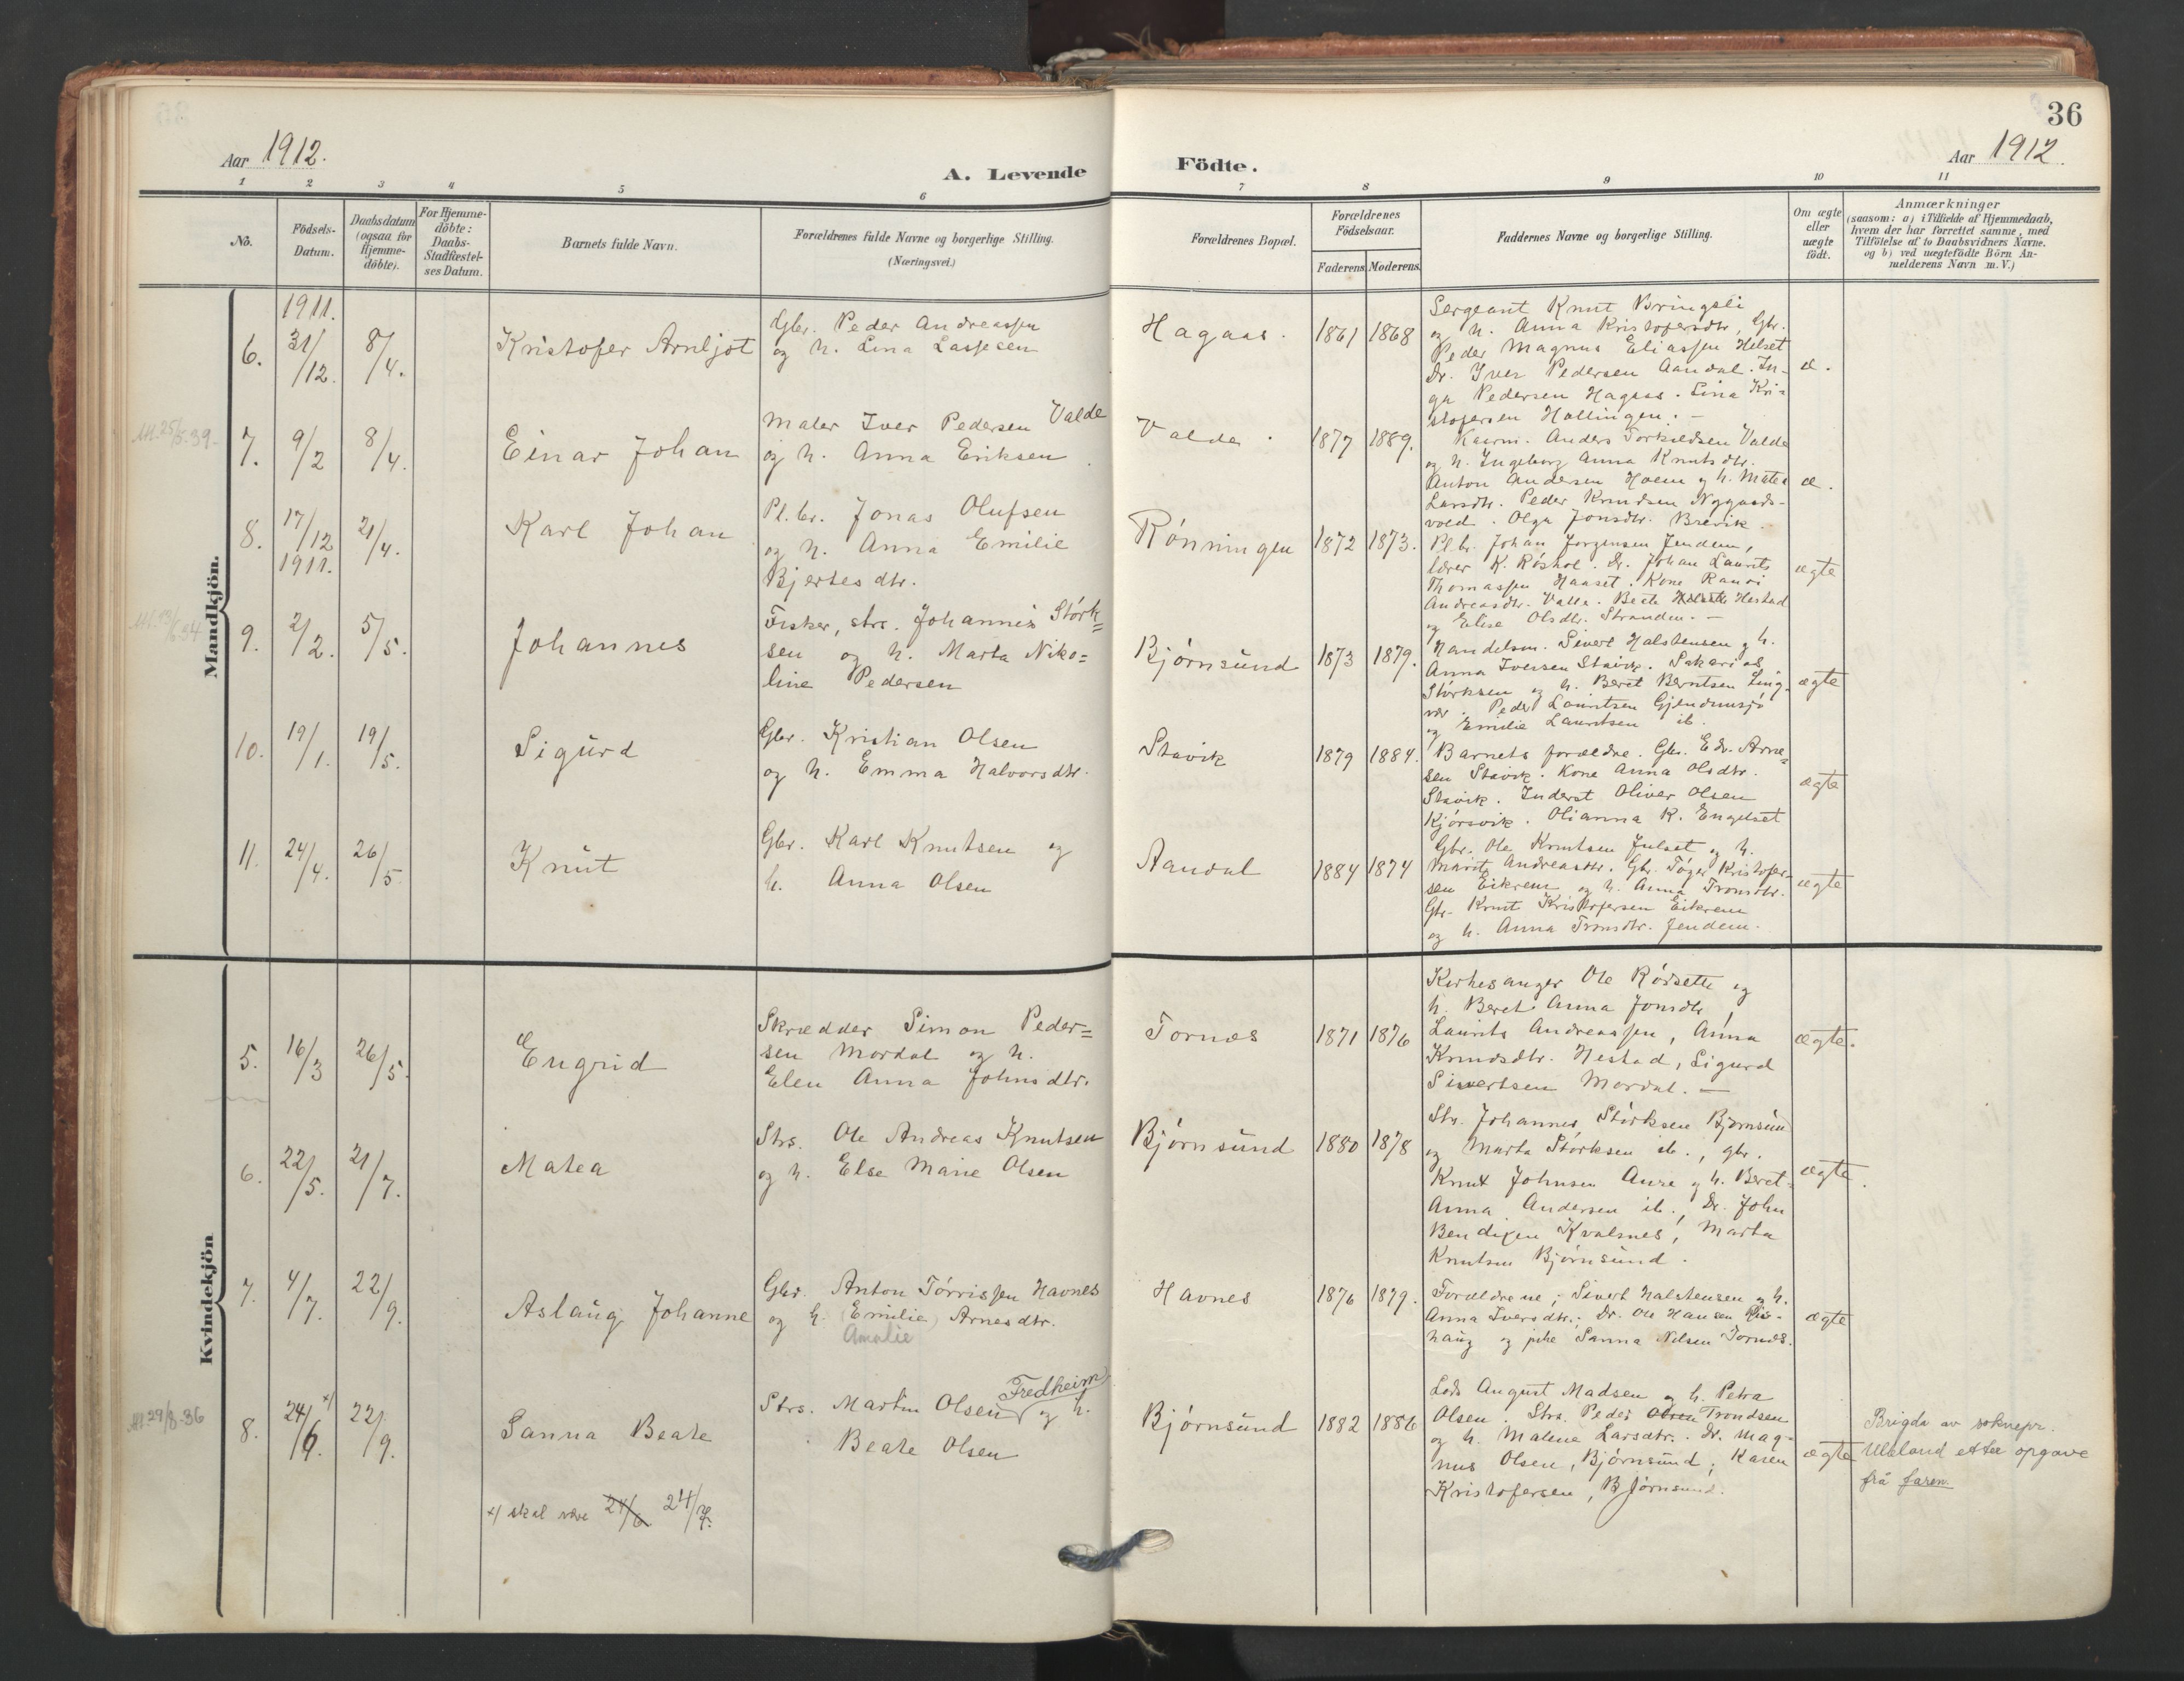 36
Aar 1912.
A. Levende Födte.
Aar 1912.
1 2 3 4 5 6 7 8 9 10 11
No.
Födsels-
Datum.
Daabsdatum
(ogsaa for
Hjemme-
döbte).
For Hjemme-
döbte:
Daabs-
Stadfæstel-
ses Datum.
Barnets fulde Navn.
Forældrenes fulde Navne og borgerlige Stilling.
(Næringsvei.)
Forældrenes Bopæl.
Forældrenes
Födselsaar.
Faderens Moderens
Faddernes Navne og borgerlige Stilling.
Om ægte
eller
uægte
födt.
Anmærkninger
(saasom: a) i Tilfælde af Hjemmedaab,
hvem der har forrettet samme, med
Tilföielse af to Daabsvidners Navne.
og b) ved uægtefödte Börn An-
melderens Navn m. V.)
Mandkjön.
6.
1911.
31/12.
8/4.
Kristofer Arnljot
Gbr. Peder Andreassen
og h. Lina Lassesen
Hagaas.
1861 1868
Sergeant Knut Bringsli
og h. Anna Kristofersdtr, Gbr.
Peder Magnus Eliassen Helset
Dr. Iver Pedersen Aandal. In-
ga Pedersen Hagaas. Lina Kri-
stofersen Hollingen. -
æ.
7.
9/2
8/4.
Einar Johan
Maler Iver Pedersen Valde
og h. Anna Eriksen
Valde.
1877 1889.
Kaarm. Anders Torkildsen Valde
og h. Ingeborg Anna Knutsdtr.
Anton Andersen Hoem og h. Matea
Larsdtr. Peder Knudsen Nygaards-
vold. Olga Jonsdtr. Brevik.
æ.
8.
17/12
1911.
21/4.
Karl Johan
Pl.br. Jonas Olufsen
og h. Anna Emilie
Bjertesdtr.
Rönningen
1872 1873.
Pl.br. Johan Jorgensen Jendem,
lærer K. Röshol. Dr. Johan Laurits
Thomassen Haaset. Kone Randi
Andreasdtr. Valle. Beate Hestad
og Elise Olsdtr. Stranden. -
ægte
9.
2/2.
5/5.
Johannes
Fisker, strs. Johannes Störk=
sen og h. Marta Niko=
line Pedersen
Björnsund
1873 1879.
Handelsm. Sivert Halstensen og h.
Anna Iversen Stavik. Sakarias
Störksen og h. Beret Berntsen Ling-
vær. Peder Lauritsen Gjendemsjö
og Emilie Lauritsen ib.
ægte
10.
19/1.
19/5.
Sigurd
Gbr. Kristian Olsen
og h. Emma Halvorsdtr.
Stavik
1879 1884.
Barnets forældre. Gbr. Edv. Arne=
sen Stavik. Kone Anna Olsdtr.
Stavik. Inderst Oliver Olsen
Kjörsvik. Olianna K. Engelset
ægte
11.
24/4.
26/5
Knut
Gbr. Karl Knutsen og
h. Anna Olsen
Aandal
1884 1874
Gbr. Ole Knutsen Julset og h.
Marit Andreasdtr. Gbr. Töger Kristofer-
sen Eikrem og h. Anna Tronsdtr.
Gbr. Knut Kristofersen Eikrem
og h. Anna Tronsdtr. Jendem.
ægte
Kvindekjön
5.
16/3
26/5.
Engrid
Skrædder Simon Peder=
sen Mordal og h.
Elen Anna Johnsdtr.
Tornes
1871 1876
Kirkesanger Ole Rödsette og
h. Beret Anna Jonsdtr,
Laurits Andreassen, Anna
Knudsdtr. Hestad, Sigurd
Sivertsen Mordal. -
ægte.
6.
22/5.
21/7.
Matea
Strs. Ole Andreas Knutsen
og h. Else Marie Olsen
Björnsund
1880 1878
Str. Johannes Störksen Björnsund
og Marta Störksen ib., gbr.
Knut Johnsen Aure og h. Beret-
Anna Andersen ib., Dr. John
Bendixen Kvalnes, Marta
Knutsen Björnsund.
ægte.
7.
4/7.
22/9.
Aslaug Johanne
Gbr. Anton Törrissen Havnes
og h. (Emilie) Arnesdtr.
Amalie
Havnes
1876 1879.
Forældrene; Sivert Halstensen og h.
Anna Iversdtr.; Dr. Ole Hansen Ris-
haug og pike Sanna Nilsen Tornes.
ægte
8.
24/6. x)
22/9.
Sanna Beate
Strs. Martin Olsen Fredheim og h.
Beate Olsen
Björnsund
1882 1886
Lods August Madsen og h. Petra
Olsen. Strs. Peder Olsen Trondsen
og h. Malene Larsdtr. Dr. Mag-
nus Olsen, Björnsund; Karen
Kristofersen, Björnsund.
ægte
Brigda av soknepr.
Uleland etter opgave
frå faren.
x) skal være 24/6 24/7.